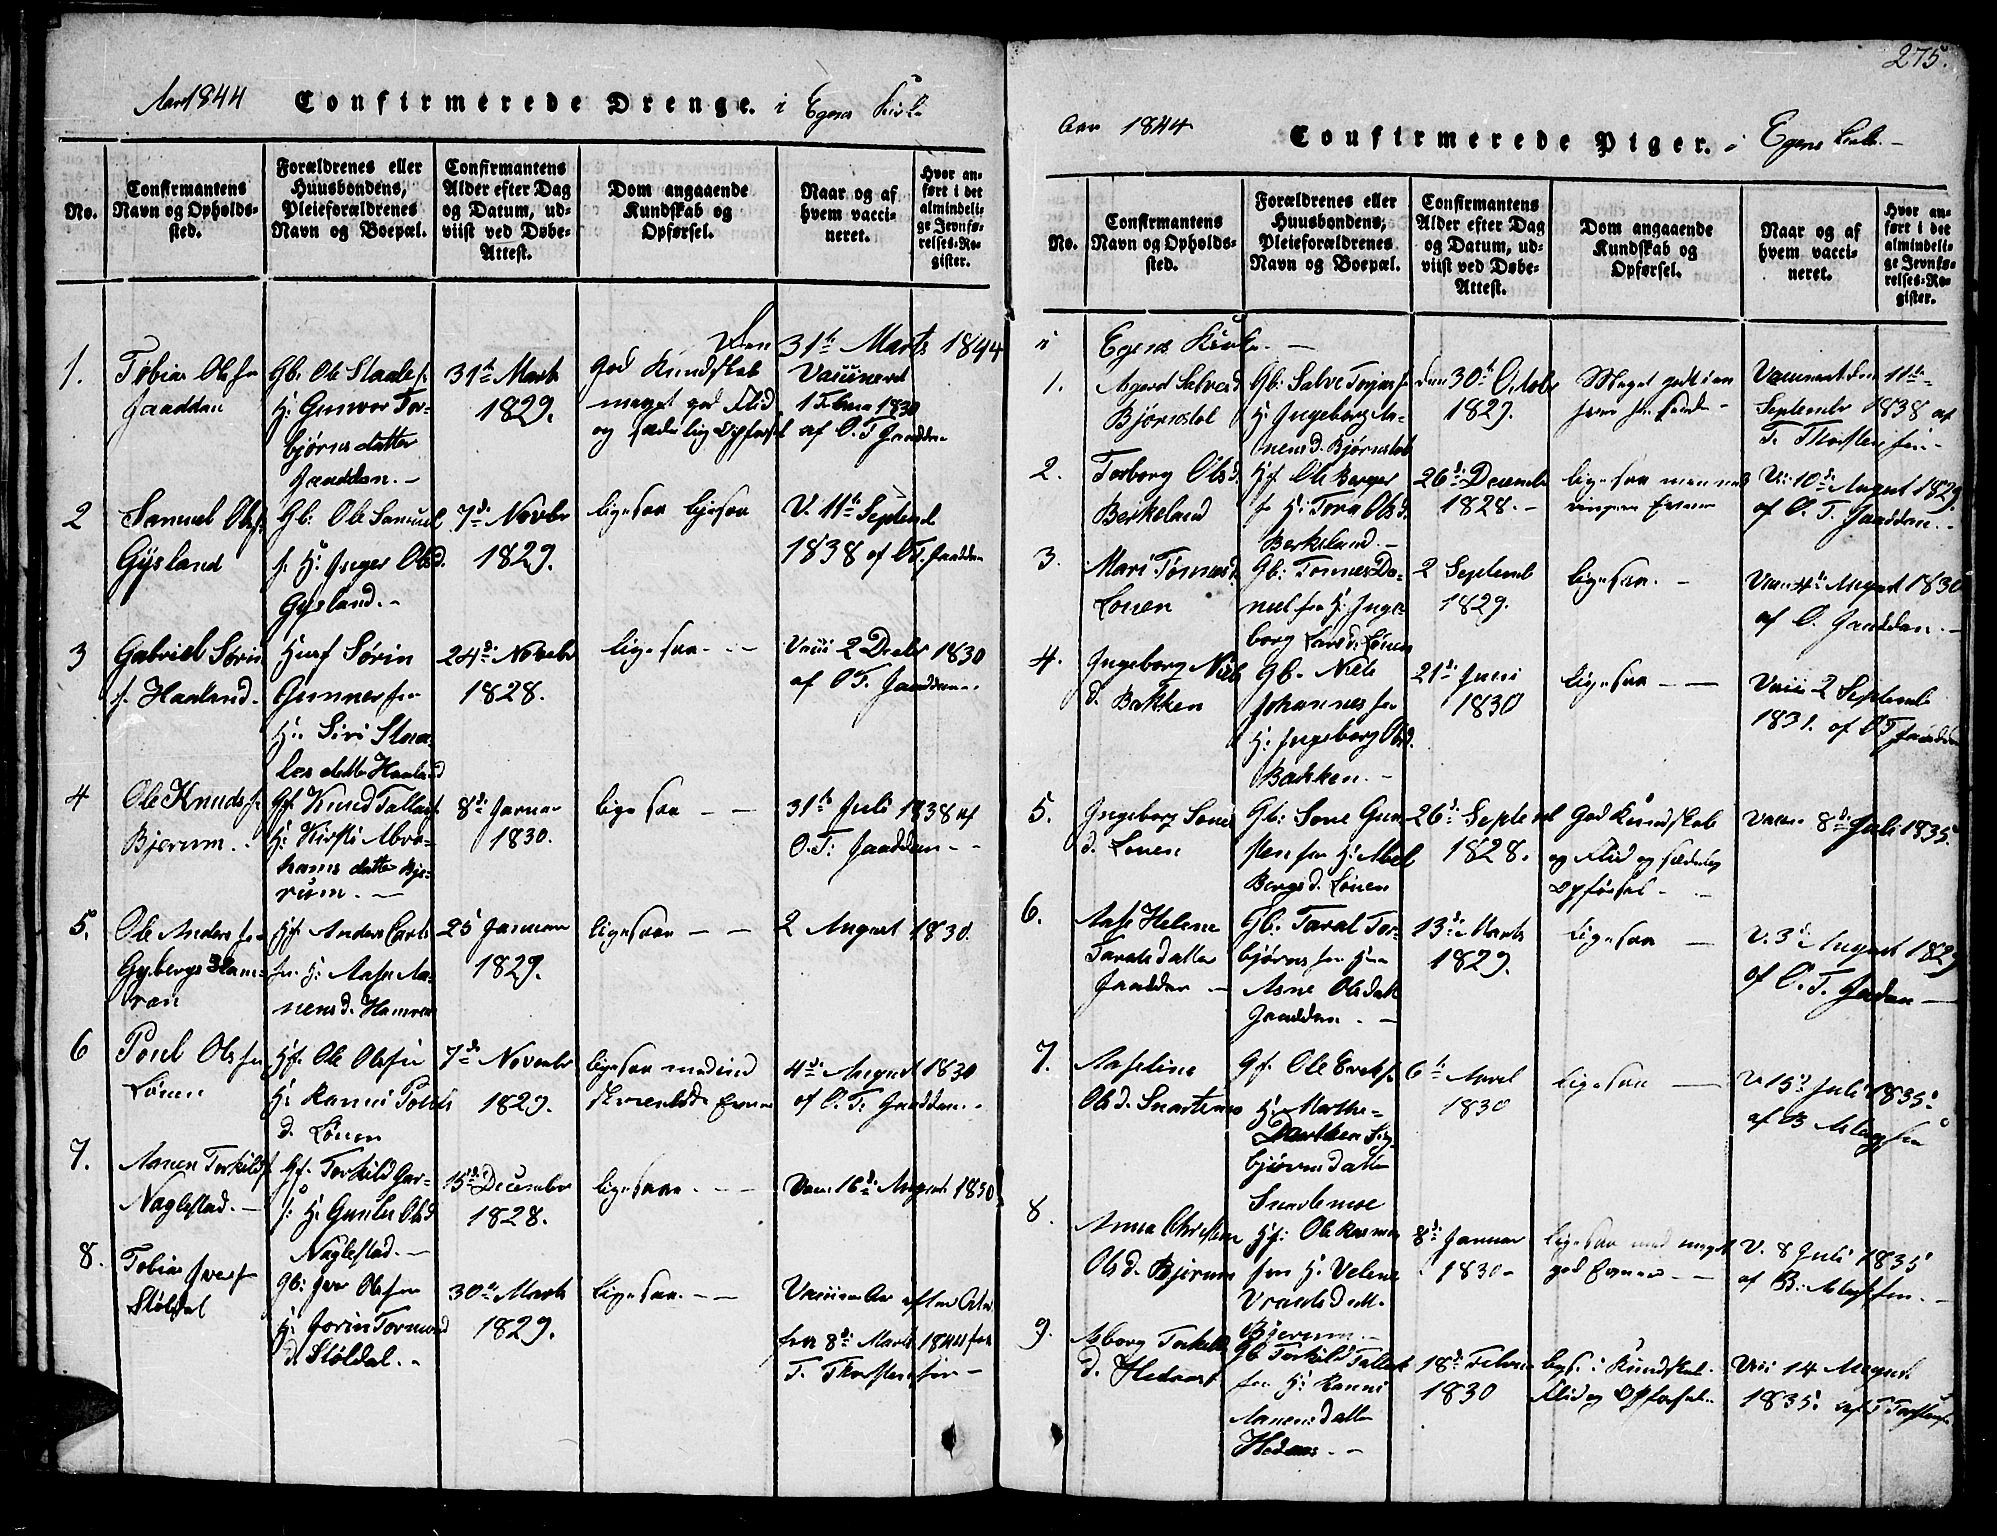 Aar 1844 Confirmerede Drenge. i Egens Kirke
No.
Confirmantens
Navn og Opholds-
sted.
Forældrenes eller
Huusbondens,
Pleieforældrenes
Navn og Boepæl.
Confirmantens
Alder efter Dag
og Datum, ud-
viist ved Døbe-
Attest.
Dom angaaende
Kundskab og
Opførsel.
Naar og af
hvem vacci-
neret.
Hvor an-
ført i det
almindeli-
ge Jevnfø-
relses-Re-
gister.
Den 31te Marts 1844
1.
Tobias Olsen
Jaaddan
Gb. Ole Staales.
H: Gunvor Tor-
bjørnsdatter
Jaaddan. -
31te Marts
1829.
God Kundskab
meget god Flid
og sædelig Opførsel
Vaccineret
1 Febru 1830
af O. T. Jaaddan
2
Samuel Ols.
Gysland
Gb. Ole Samuel
s. H: Inger Olsd.
Gysland. -
7de Novbr
1829.
ligesaa ligesaa
V. 11te Septemb
1838 af O.T. Jaaddan
3
Gabriel Sørin
s. Haaland.
Huusf Sørin
Gunnersen
H: Siri Staa-
lesdatter Haaland
24de Novbr
1828.
ligesaa. - -
Vacc 2 Decbr 1830
af O T. Jaaddan.
4
Ole Knuds.
Bjerum.
Gf. Knud Tallaks
H: Kirsti Abra-
hams datter Bje-
rum. -
8de Januar
1830.
ligesaa - -
31te Juli 1838 af
O. T: Jaaddan - -
5.
Ole Andersen
Gybergs Ham-
ran
Hf. Anders Carls
sen H: Aase Aa-
nensd. Hamren
25 Januar
1829.
ligesaa - -
2 August 1830.
6
Poul Olsen
Lønen
Hf. Ole Olsen
H: Ranni Pouls
d. Lønen
7de Novembr
1829.
ligesaa med
Evner
4de August 1830
af O. T: Jaaddan. -
7.
Aanen Torkilds.
Naglestad. -
Gf. Torkild Gar-
s: H: Gunlu Olsd
Naglestad. -
15de December
1828.
ligesaa. - -
Vacc 16de August 1830
8.
Tobias Ivers.
Støldal
Gb: Iver Olsen
H: Jorin Tormund
d. Støldal. -
30te Marts
1829.
ligesaa. - -
8de Marts 1844
T. Thorsten sen -
275.
Aar 1844 Confirmerede Piger. i Egens Kirke. -
No.
Confirmantens
Navn og Opholds-
sted.
Forældrenes eller
Huusbondens,
Pleieforældrenes
Navn og Boepæl.
Confirmantens
Alder efter Dag
og Datum, ud-
viist ved Døbe-
Attest.
Dom angaaende
Kundskab og
Opførsel.
Naar og af
hvem vacci-
neret.
Hvor an-
ført i det
almindeli-
ge Jevnfø-
relses-Re-
gister.
i Egens Kirke. -
1.
Agerd Salvesd
Bjørnstøl
Gb: Salve Torjus
H. Ingeborg Aa-
nensd. Bjørnstøl
den 30te Octobr
1829.
Meget godt
Vaccineret den 11te
September 1838 af
T. Thorsten
sen -
2.
Torborg Olsd.
Berkeland
Hf. Ole Berger
s. H: Tora Olsd.
Berkeland. -
26de December
1828. -
ligesaa men med
ringere Evner
V: 10de August 1829.
af O. T. Jaaddan. -
3.
Mari Tønnesd.
Lønen
Gb: Tønnes Da-
niel sen H: Inge-
borg Larsd. Lønen
2 Septemb
1829.
ligesaa. -
August 1830
af O. Jaaddan. -
4.
Ingeborg Niels
d. Bakken
Gb. Niels
Johannessen
H. Ingeborg Olsd.
Bakken. -
21de Juni
1830
ligesaa - -
Vacc 2 Septemb
1831. af O T Jaaddan
5.
Ingeborg Sones
d. Lønen
Gb: Sone Gun
stensen H: Abel
Bergsd. Lønen
26de Septemb
1828.
God Kundskab
og Flid og sædelig
Opførsel. -
Vacc 8de Juli 1835.
6.
Aase Helene
Taralsdatter
Jaaddan -
Gb: Taral Tor-
bjørnsen
Asne Olsdatt
Jaaddan. -
13de Marts
1829.
ligesaa -
V. 3de August 1829
af O. T. Jaddan -
7.
Aaseline
Olsd. Snartemo
Gf. Ole Eriks.
H: Marthe
Sig-
bjørnsdatter
Snartemoe
6te April
1830
ligesaa -
V. 15de Juli 1835.
af B
8.
Anna Christine
Olsd. Bjerum
Hf: Ole Rasmus
sen H. Velene
Bjerum. -
8de Januar
1830 -
ligesaa med meget
god Evner - -
V. 8 Juli 1835
af B.
9.
Asborg Torkilds
d. Hedaas
Gb Torkild Tallak
sen H: Ranni
Aanensdatter
Hedaas. -
18de Febru
1830
Kundskab.
Flid og Opførsel.
Vacc 14 August
1835 af T Torstens.